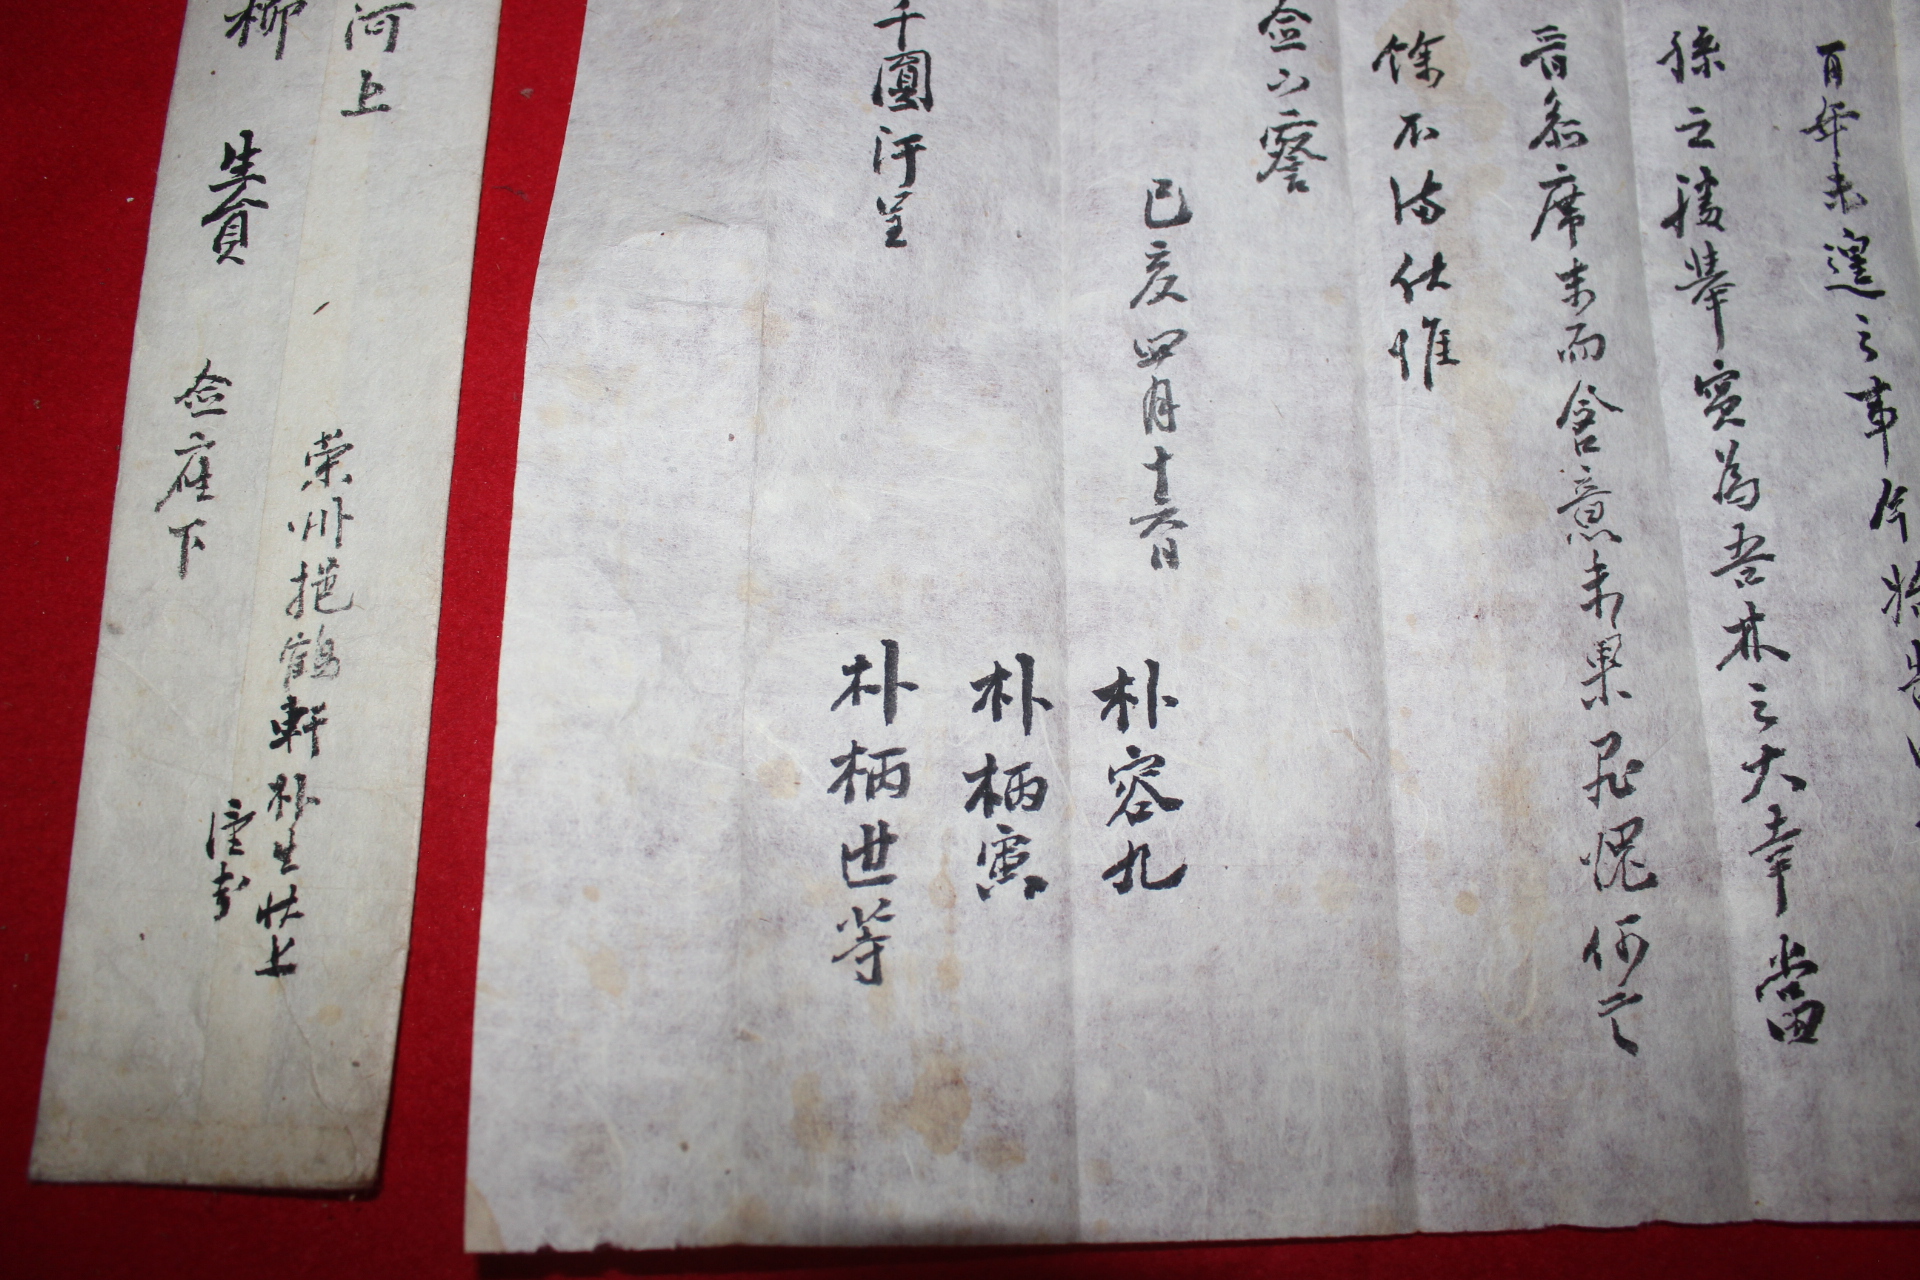 百年未遑之事今將
孫之積擧實爲吾林之大幸當
晉參席末而含意未果
愧何言
餘不備伏惟
僉下察
己亥四月十六日
朴容九
朴柄寅
朴柄世等
千圓汗呈
河上
柳生員
僉座下
榮州挹鶴軒朴生狀上
謹封